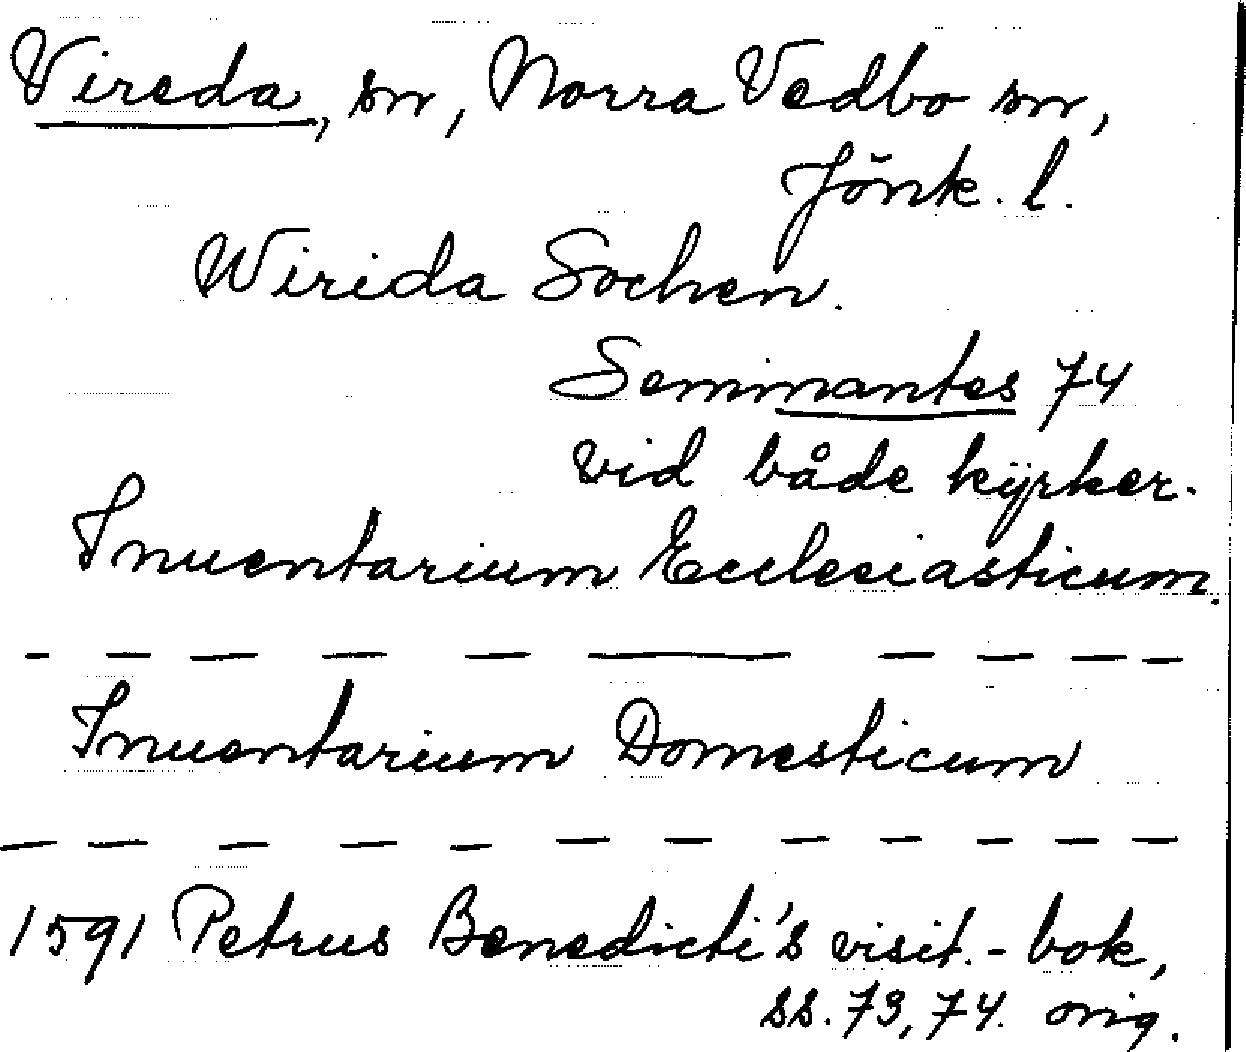 Vireda, sn, Norra Vedbo sn,
Jönk. l.
Wirida Sochen.
Seminantes 74
vid både kÿrker.
Inuentarium Ecclesiasticum.
— — — — — — — — — —
Inuentarium Domesticum
— — — — — — — — — — — —
1591 Petrus Benedicti's visit.-bok,
ss. 73, 74. orig.